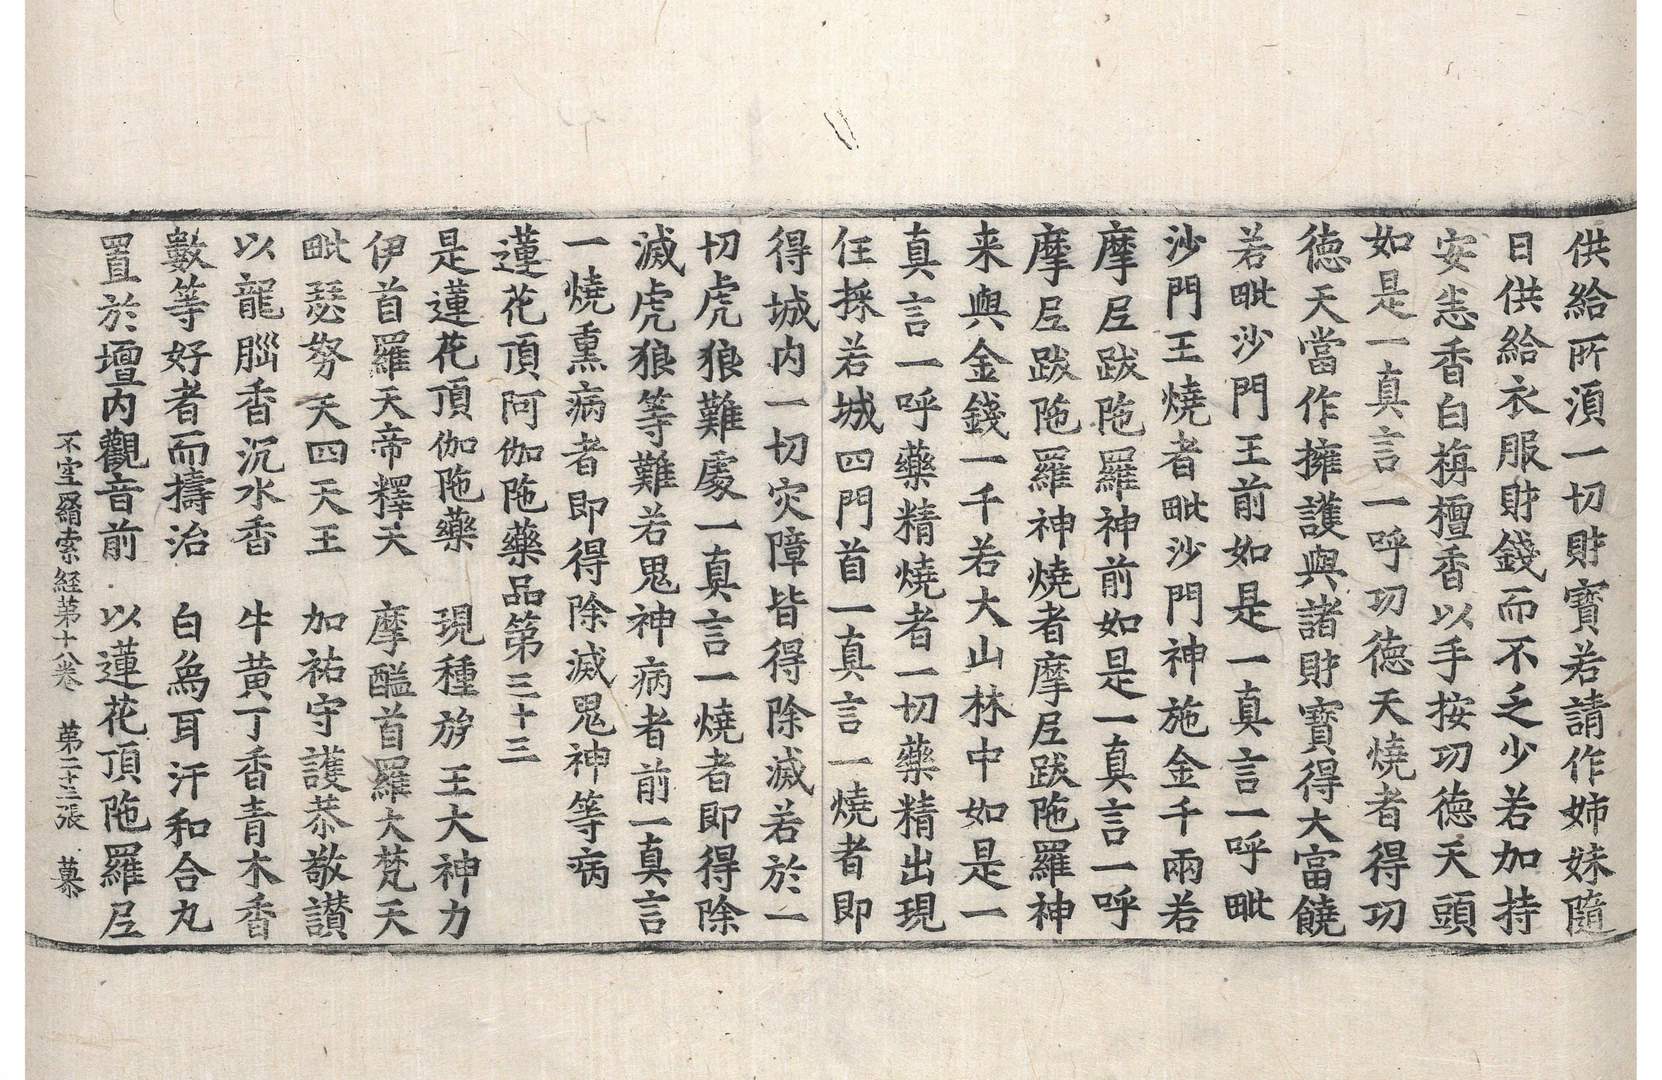 供給所湏一切財寶若請作姉妹隨
日供給衣服財錢而不乏少若加持
安悉香白栴檀香以手按功德天頭
如是一真言一呼功德天燒者得功
德天當作擁護與諸財寶得大富饒
若毗沙門王前如是一真言一呼毗
沙門王燒者毗沙門神施金千兩若
摩尼跋陁羅神前如是一真言一呼
摩尼跋陁羅神燒者摩尼跋陁羅神
来與金錢一千若大山林中如是一
真言一呼藥精燒者一切藥精出現
任採若城四門首一真言一燒者即
得城内一切灾障皆得除滅若於一
切虎狼難處一真言一燒者即得除
滅虎狼等難若鬼神病者前一真言
一燒熏病者即得除滅鬼神等病
蓮花頂阿伽陁藥品第三十三
是蓮花頂伽陁藥　現種族王大神力
伊首羅天帝釋天　摩醯首羅大梵天
毗瑟努天四天王　加祐守護恭敬讃
以龍腦香沉水香　牛黃丁香青木香
數等好者而擣治　白芻耳汗和合丸
置於壇内觀音前　以蓮花頂陁羅尼
不空羂索經第十八卷　苐二十三張　慕